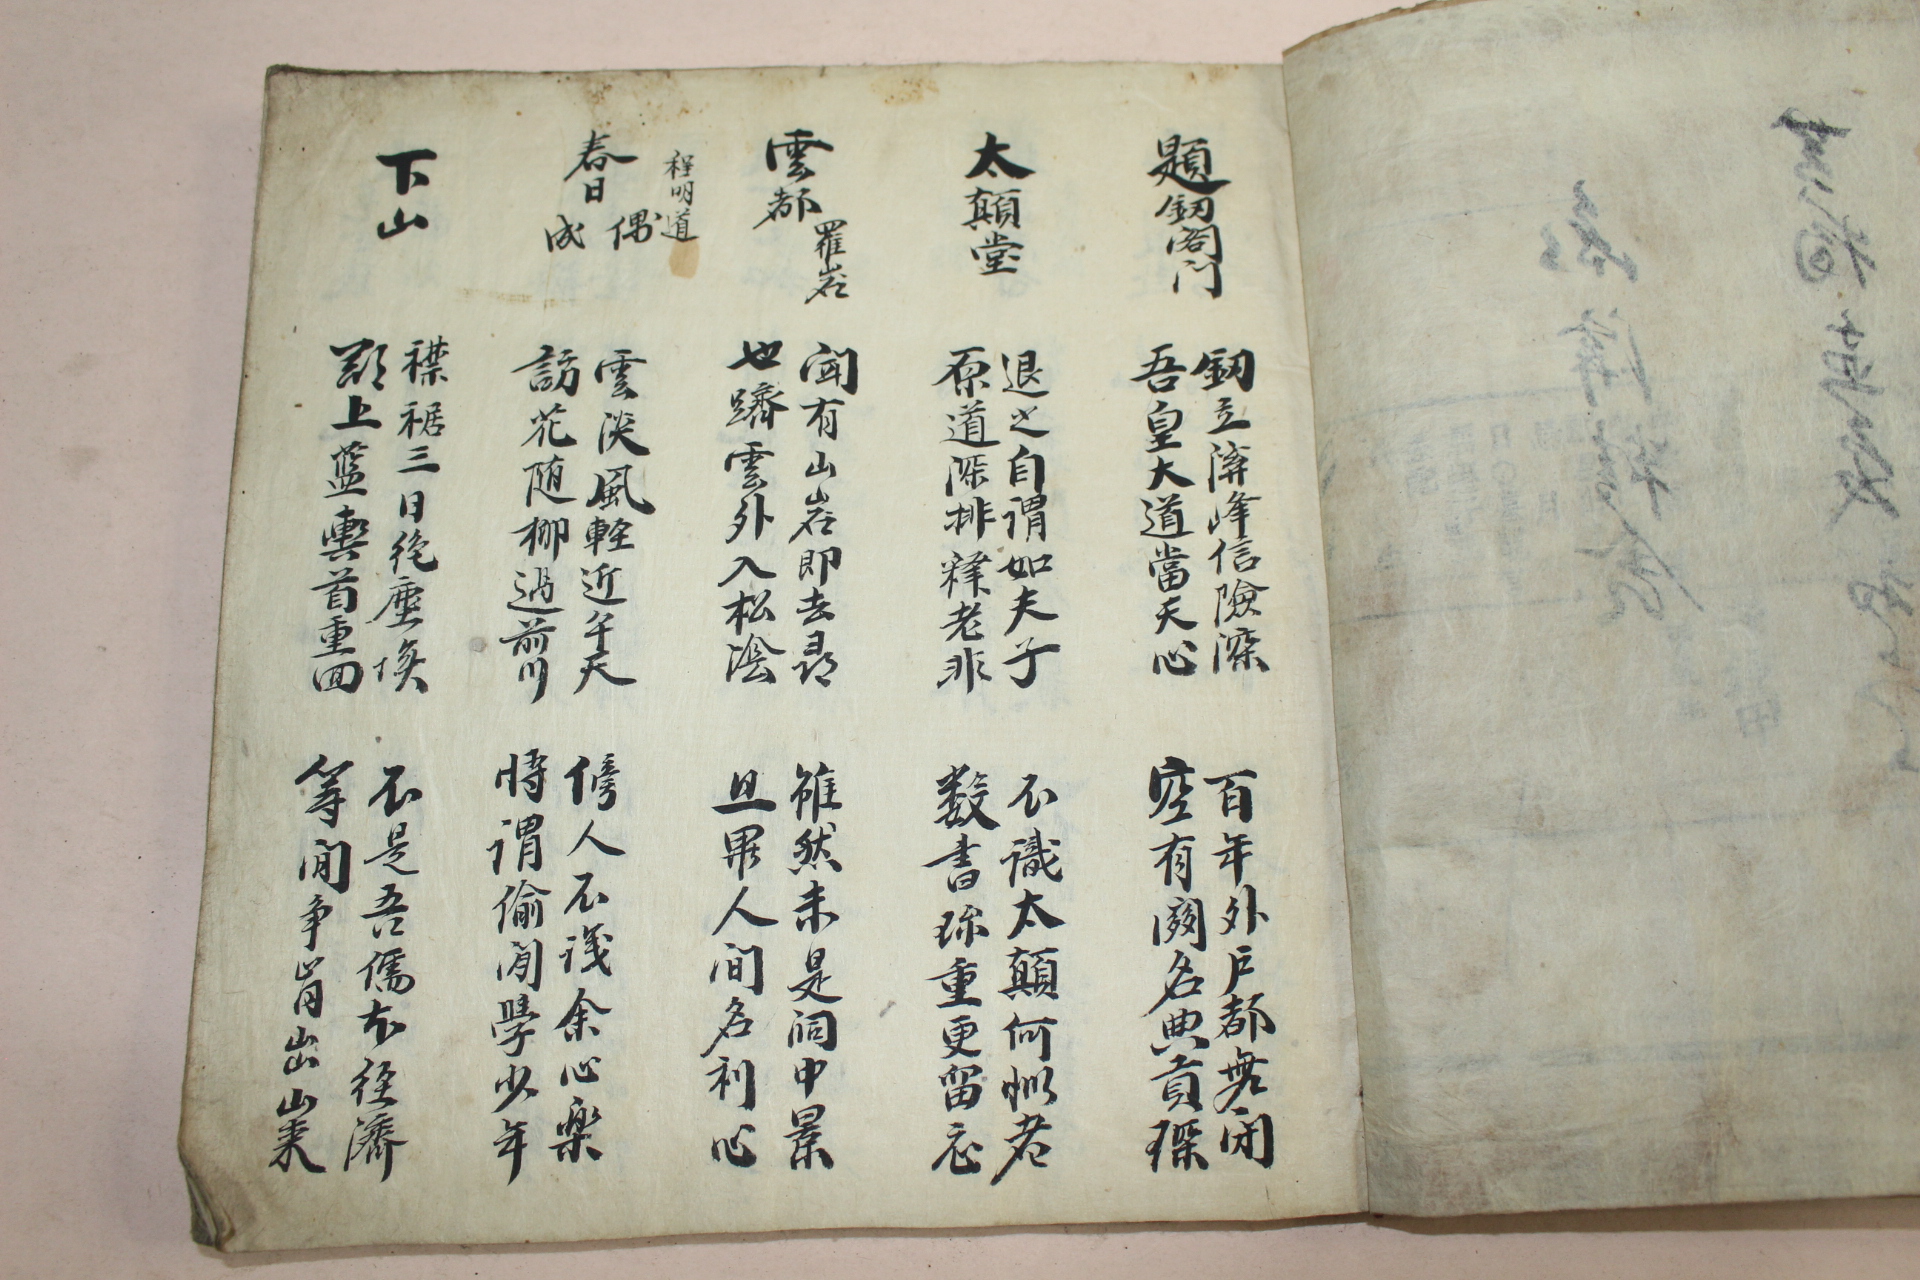 題釼閣門
釼立溝峰信險深
吾皇大道當天心
百年外戶都無閉
空有関名典貢琛
太顛堂
退之自謂如夫子
原道深排釋老非
不識太顛何㤡者
数書珎重更留衣
雲都
羅岩
闻有山岩即去尋
也躋雲外入松陰
雖然未是洞中景
且異人间名利心
程明道
春日偶成
雲淡風軽近午天
訪花随柳過前川
傍人不識余心楽
時謂偷閒學少年
下山
襟裾三日絶塵埃
欲上藍輿首重回
不是吾儒本経濟
等閒争肯出山来